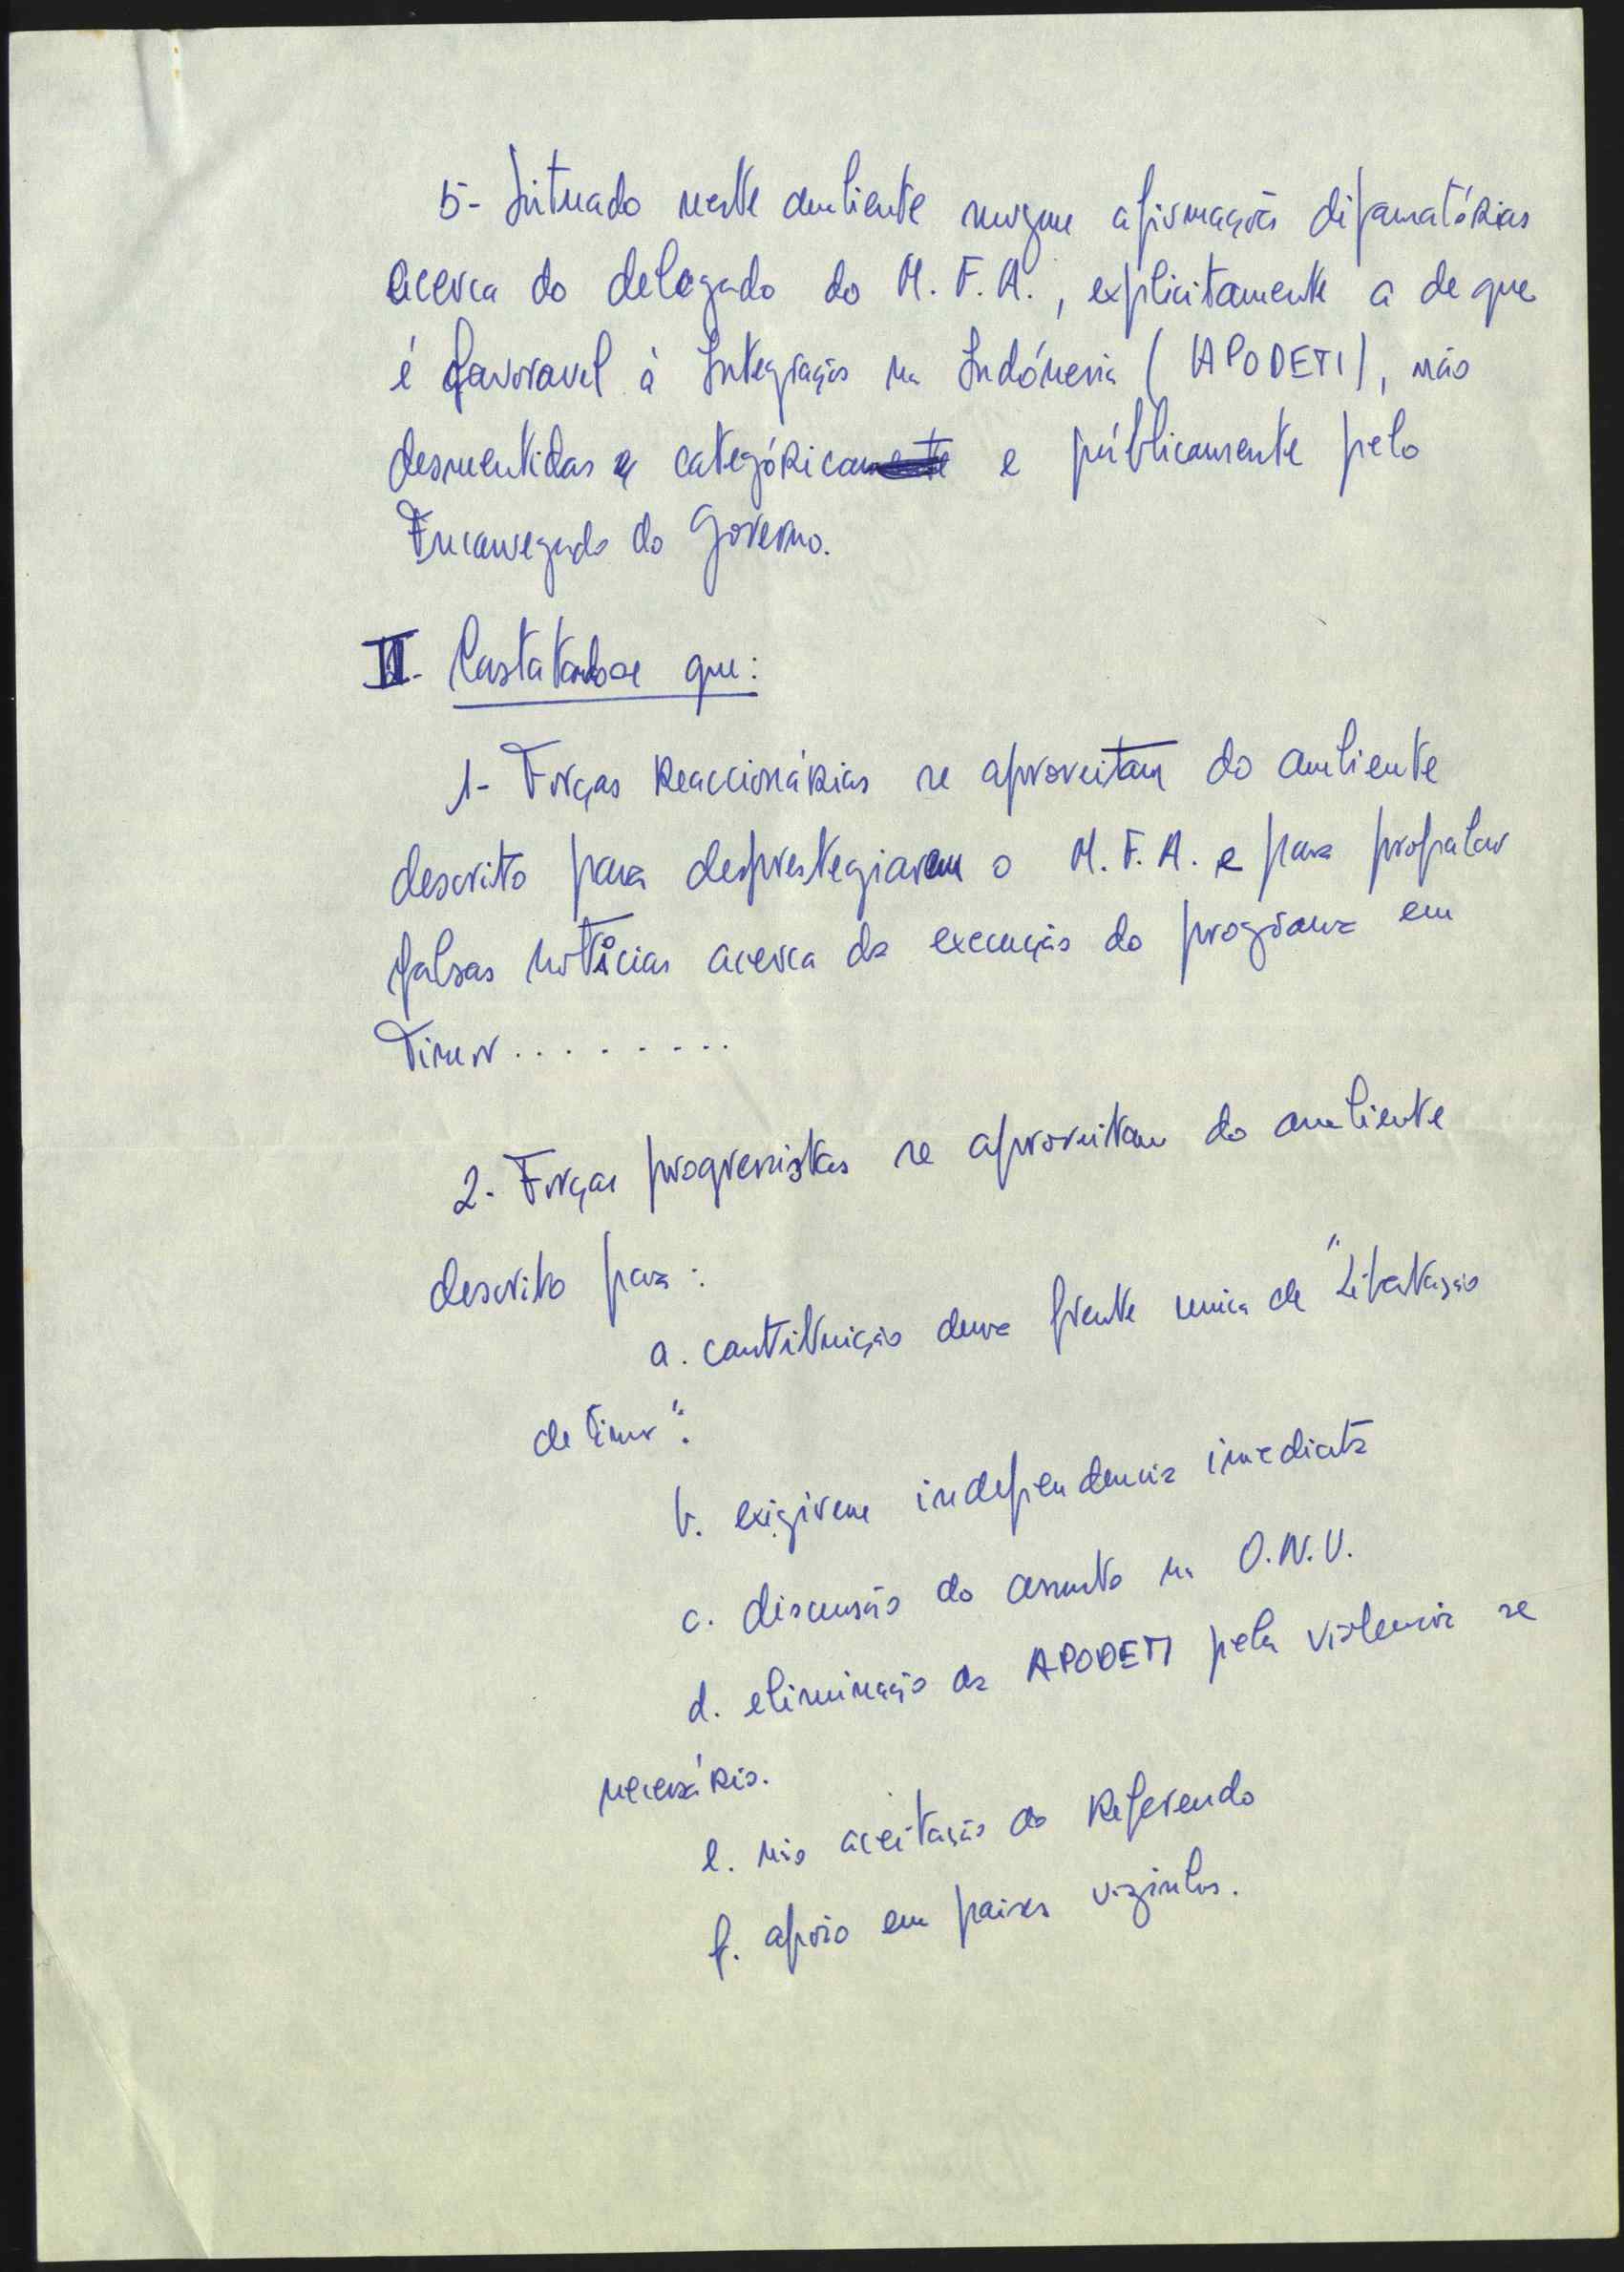 5- Situado neste ambiente surgem afirmações difamatórias
acerca do delegado do M.F.A., explicitamente a de que
é favoravel à Integração na Indónesia (APODETI), não
desmentidas categórica e públicamente pelo
Encarregado do Governo.
II. Constatando-se que:
1- Forças Reaccionárias se aproveitam do ambiente
descrito para desprestegiarem o M.F.A. e para propalar
falsas notícias acerca da execução do programa em
Timor.........
2. Forças progressistas se aproveitam do ambiente
descrito para:
a. constituição duma frente unica de "Libertação
de Timor".
b. exigirem independencia imediata
c. discussão do assunto na O.N.U.
d. eliminação da APODETI pela violencia se
necessário.
e. não aceitação do Referendo
f. apoio em paises vizinhos.